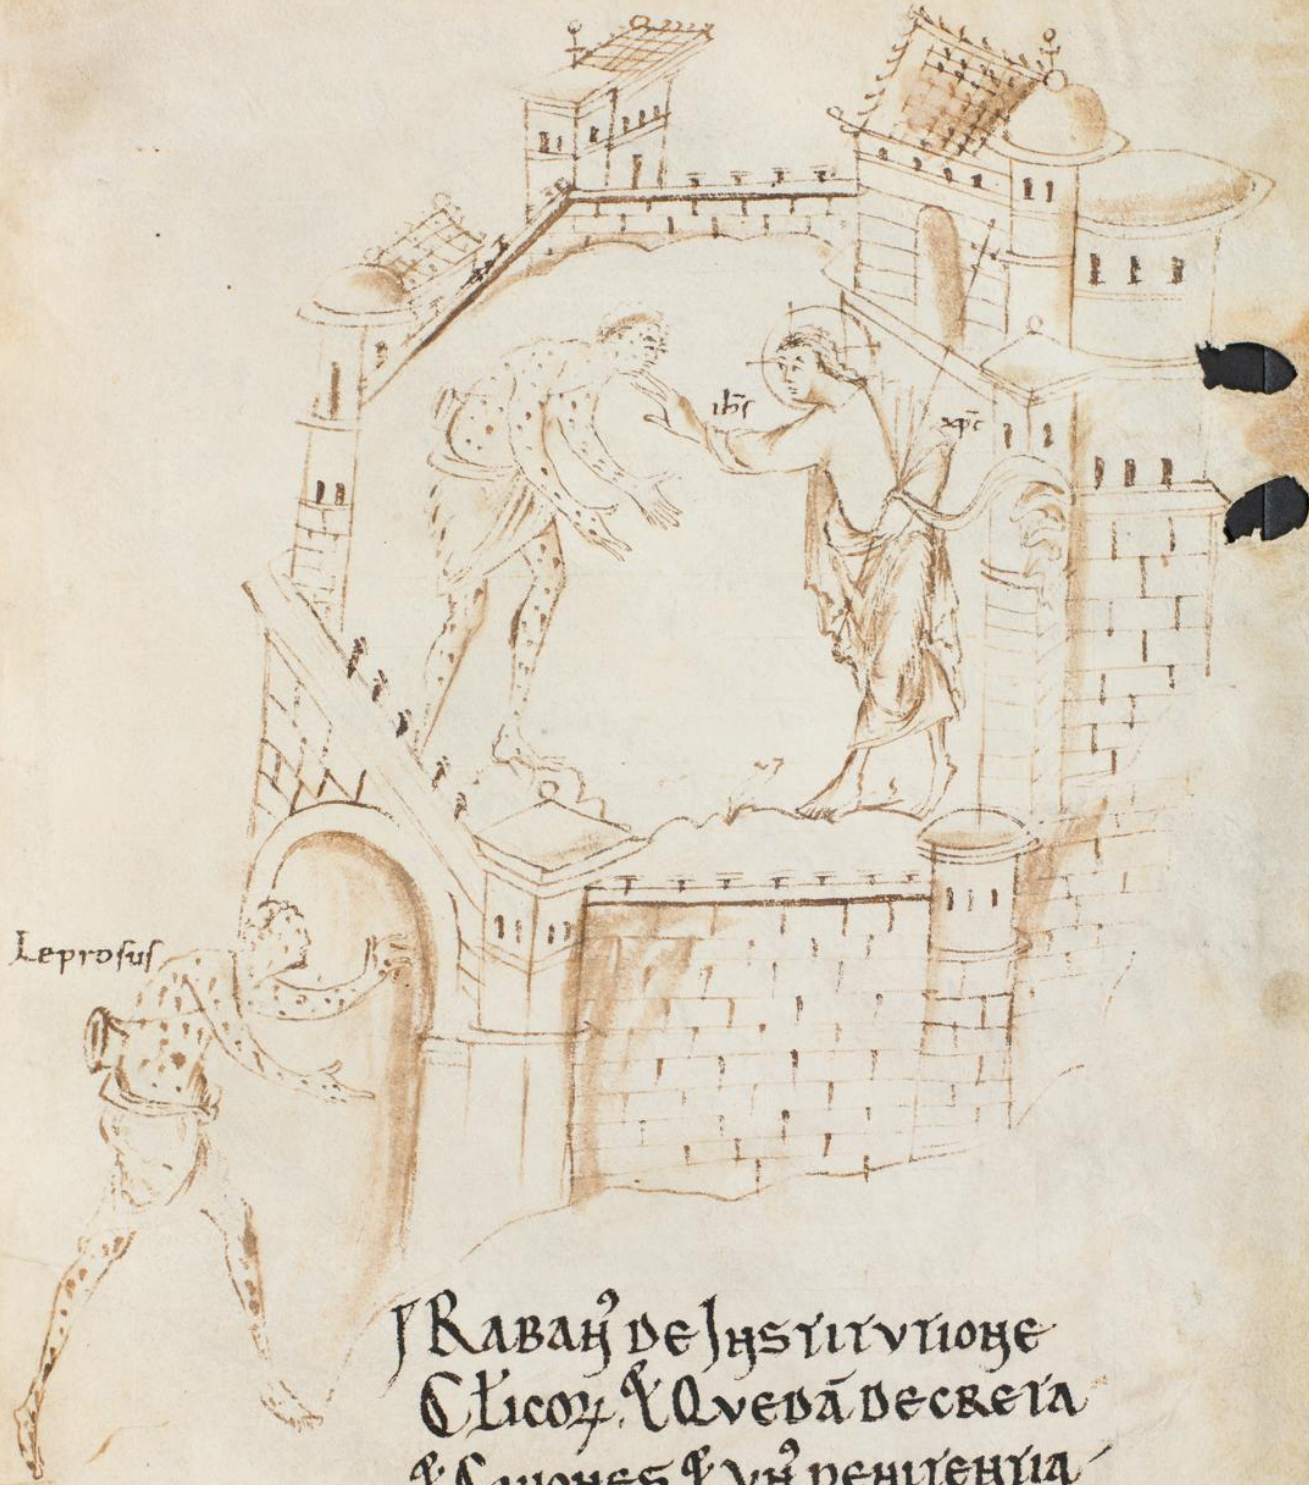 ihs̄
xp̄c
Leprosus
Rabanꝰ de Institutione
Cłicoꝝ. & Quedā decreta
& Canones & unꝰ penitentia